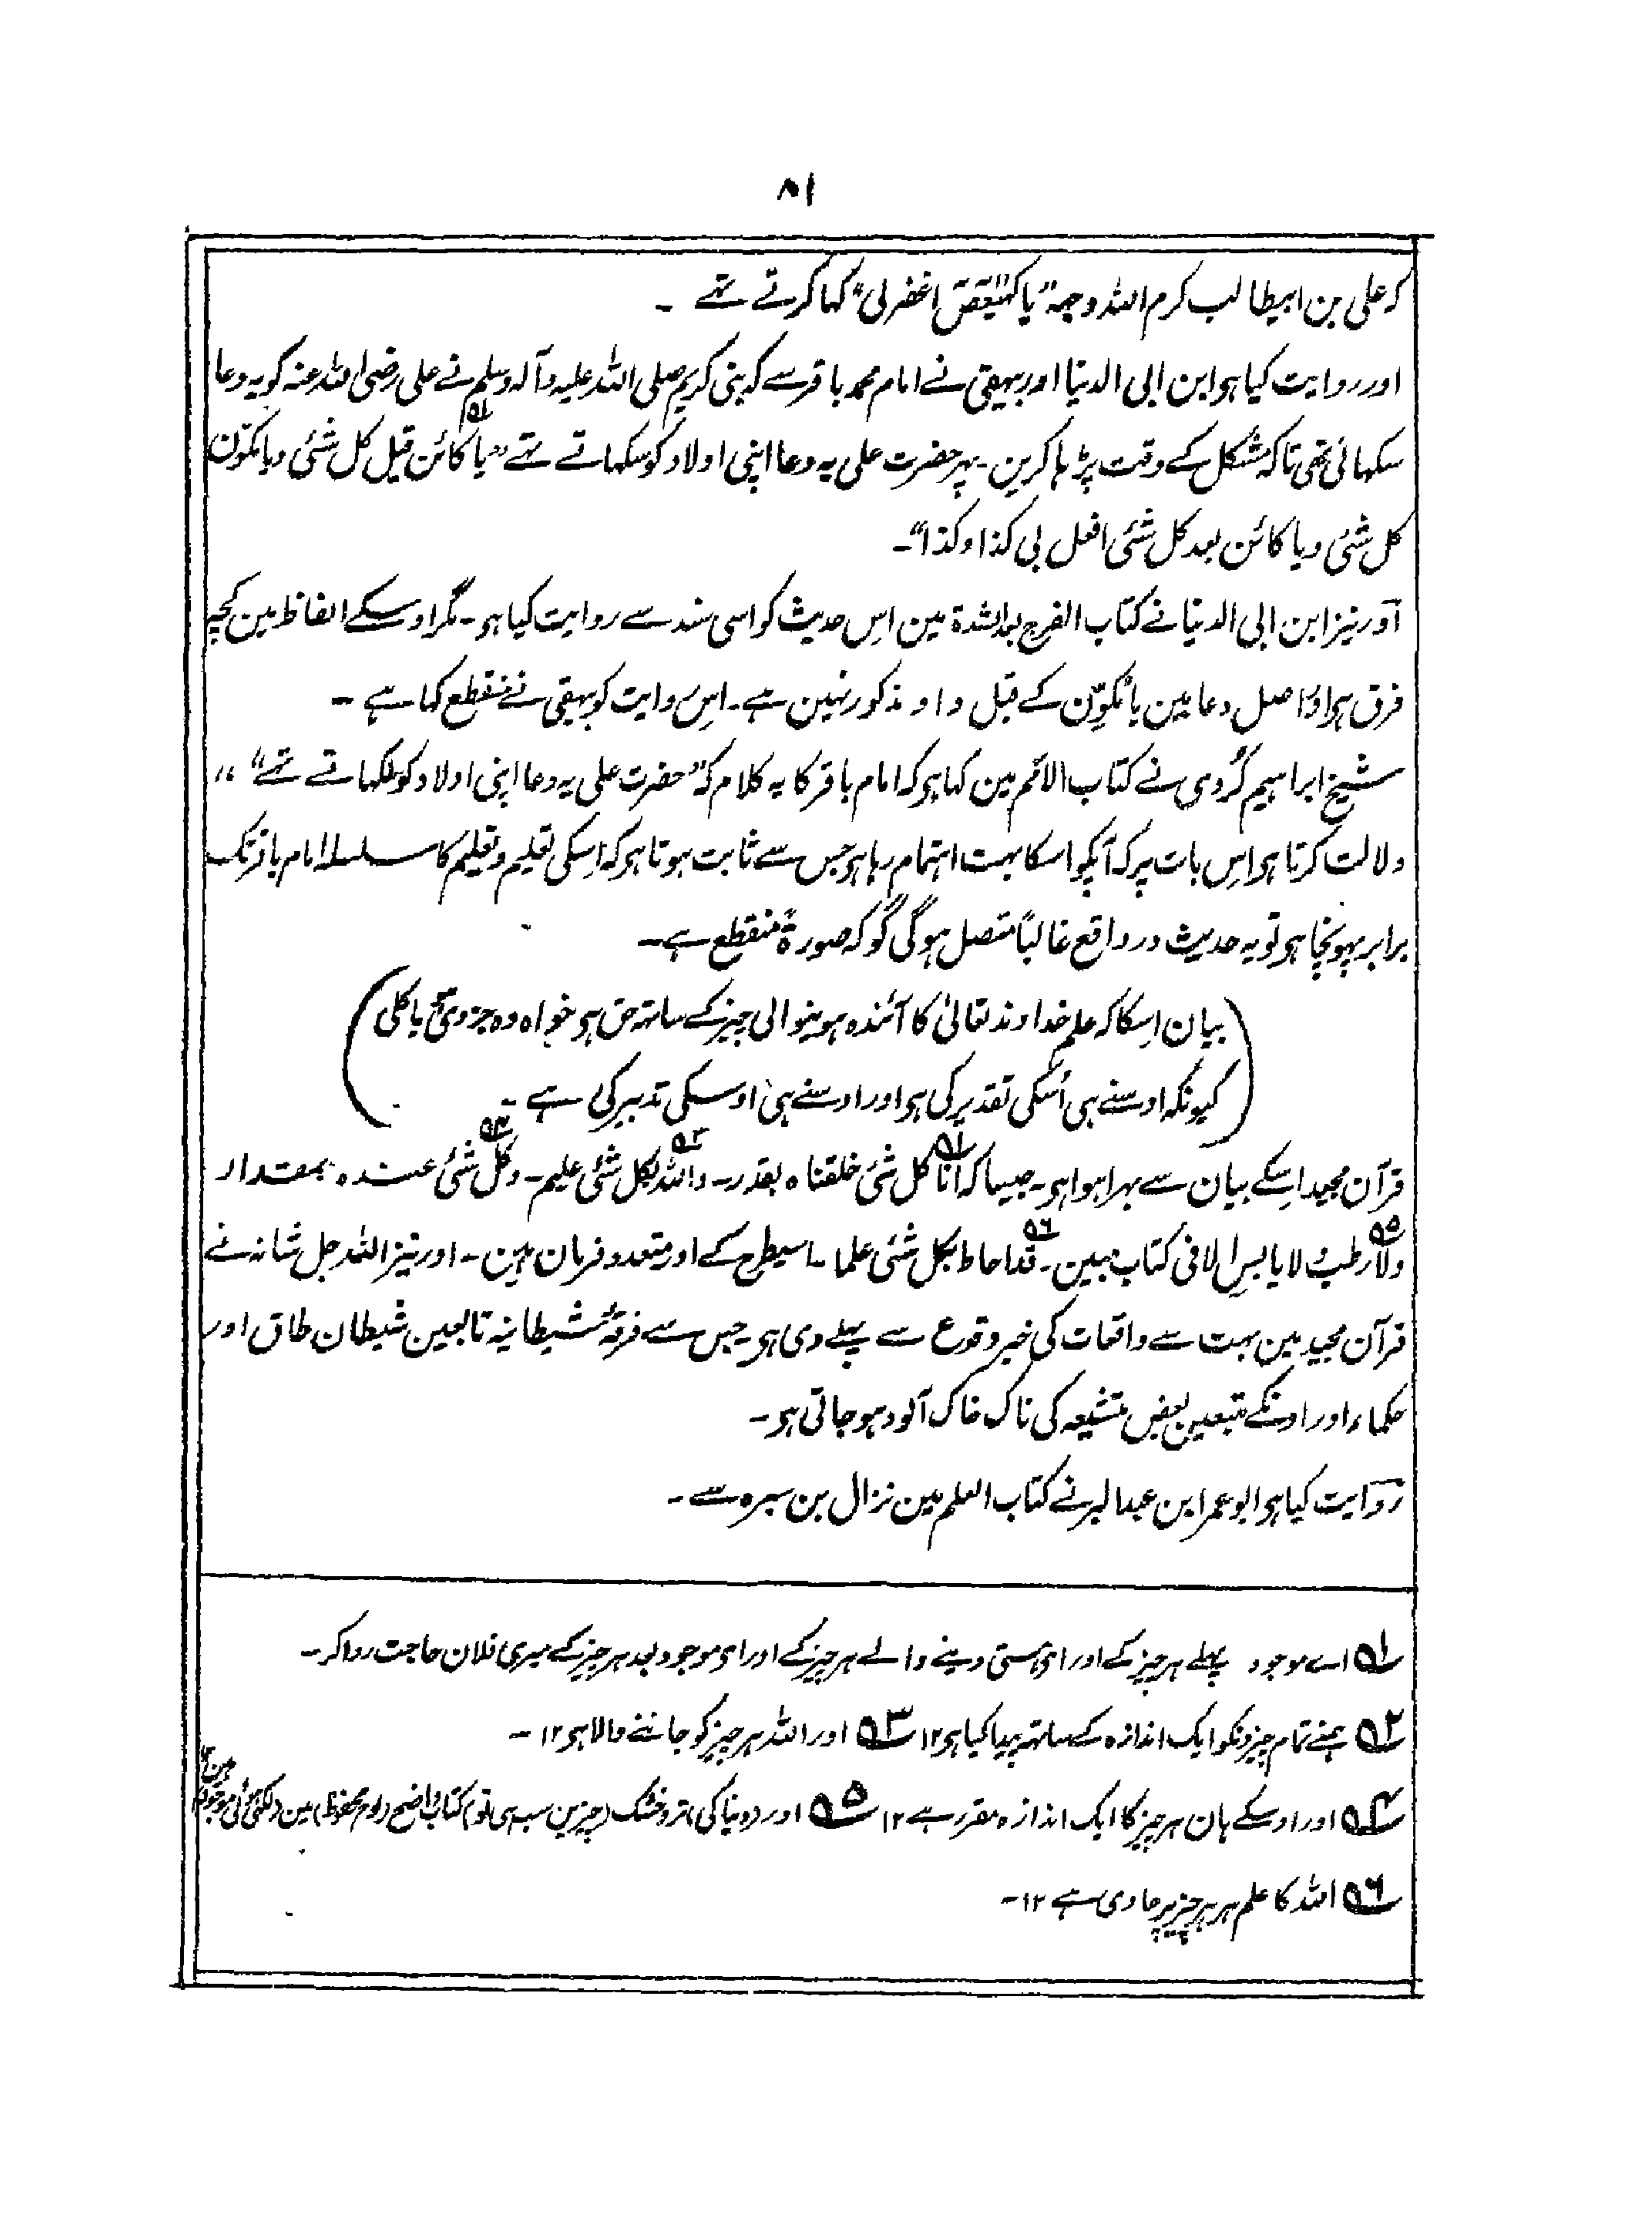 ۸۱
کہ علی بن ابیطالب کرم اللہ وجہہ "یا کہیعص اغفرلی" کہا کرتے تہے ۔
اور روایت کیا ہو ابن ابی الدنیا اور بیہقی نے امام محمد باقر سے کہ نبی کریم صلی اللہ علیہ وآلہ وسلم نے علی رضی اللہ عنہ کو یہ دعا
سکہائی تھی تاکہ مشکل کے وقت پڑہا کرین ۔ پہر حضرت علی یہ دعا اپنی اولاد کو سکہاتے تہے "یا ۱؎ کائن قبل کل شئی ویا مکوّن
کل شئی ویا کائن بعد کل شئی افعل بی کذا وکذا"۔
اور نیز ابن ابی الدنیا نے کتاب الفرج بعد الشدۃ مین اِس حدیث کو اسی سند سے روایت کیا ہو ۔ مگر اوسکے الفاظ مین کچہ
فرق ہو اور اصل دعا مین یا مکوّن کے قبل واو مذکور نہین ہے ۔ اِس روایت کو بیہقی نے منقطع کہا ہے ۔
شیخ ابراہیم کُردی نے کتاب الاَمم مین کہا ہو کہ امام باقر کا یہ کلام کہ "حضرت علی یہ دعا اپنی اولاد کو سکہاتے تہے" ،،
دلالت کرتا ہو اِس بات پر کہ آپکو اسکا بہت اہتمام رہا ہو جس سے ثابت ہوتا ہو کہ اِسکی تعلیم وتعلم کا سلسلہ امام باقر تک
برابر پہونچا ہو تو یہ حدیث در واقع غالبًا متصل ہوگی گو کہ صورۃً منقطع ہے ۔
(بیان اِسکا کہ علم خداوند تعالیٰ کا آئندہ ہونیوالی چیز کے ساتہ حق ہو خواہ وہ جزوی ہو یا کلی
کیونکہ اوسنے ہی اُسکی تقدیر کی ہو اور اوسنے ہی اوسکی تدبیر کی ہے ۔)
قرآن مجید اِسکے بیان سے بہرا ہوا ہو ۔ جیسا کہ انا ۱؎ کل شئی خلقناہ بقدر ۔ واللہ ۲؎ بکل شئی علیم ۔ وکل ۳؎ شئی عندہ بمقدار
ولا ۵؎ رطب ولا یابسٍ الا فی کتاب مبین ۔ قد ۶؎ احاط بکل شئی علما ۔ اسیطرح کے اور متعدد فرمان ہین ۔ اور نیز اللہ جل شانہ نے
قرآن مجید مین بہت سے واقعات کی خبر وقوع سے پہلے دی ہو ۔ جس سے فرقۂ شیطانیہ تابعین شیطان طاق اور
حکماء اور اونکے متبعین بعض متشیعہ کی ناک خاک آلود ہو جاتی ہو ۔
روایت کیا ہو ابو عمر ابن عبد البر نے کتاب العلم مین نزال بن سبرہ سے ۔
۱؎ اے موجود پہلے ہر چیز کے اور ای ہستی دینے والے ہر چیز کے اور ای موجود بعد ہر چیز کے میری فلان حاجت روا کر ۔
۲؎ ہمنے تمام چیزونکو ایک اندازہ کے ساتہ پیدا کیا ہو ۱۲ ۳؎ اور اللہ ہر چیز کو جاننے والا ہو ۱۲ ۔
۴؎ اور اوسکے ہان ہر چیز کا ایک اندازہ مقرر ہے ۱۲ ۵؎ اور (دنیا کی) تر و خشک (چیزین سب ہی تو) کتاب واضح (لوح محفوظ) مین (لکہی ہوئی موجود) ہین ۱۲
۶؎ اللہ کا علم ہر ہر چیز پر حاوی ہے ۱۲ ۔